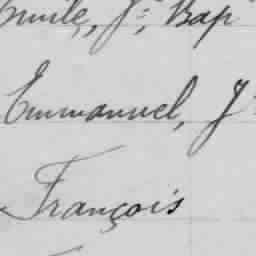 Emile, J: Bap
Emmanuel, J:
François